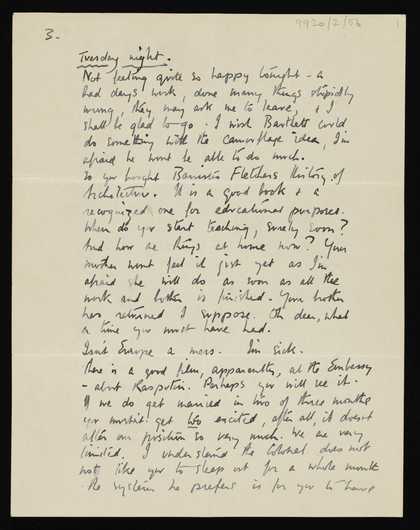 9920/2/56
1
3.
Tuesday night.
Not feeling quite so happy tonight - a
bad days work, done many things stupidly
wrong, they may ask me to leave, & I
shall be glad to go. I wish Bartlett could
do something with the Camouflage idea, I'm
afraid he wont be able to do much.
So you bought Banister Fletchers History of
Architecture. It is a good book & a
recognized one for educational purposes.
When do you start teaching, surely soon?
And how are things at home now? Your
mother wont feel it just yet as I'm
afraid she will do as soon as all the
work and bother is finished. Your brother
has returned I suppose. Oh dear, what
a time you must have had.
Isn't Europe a mess. I'm sick.
There is a good film, apparently, at the Embassy
- about Rasputin. Perhaps you will see it.
If we do get married in two or three months
you mustn't get too excited, after all, it doesnt
alter our position so very much. We are very
limited. I understand the Colonel does not
like you to sleep out for a whole month
- the system he prefers is for you to have